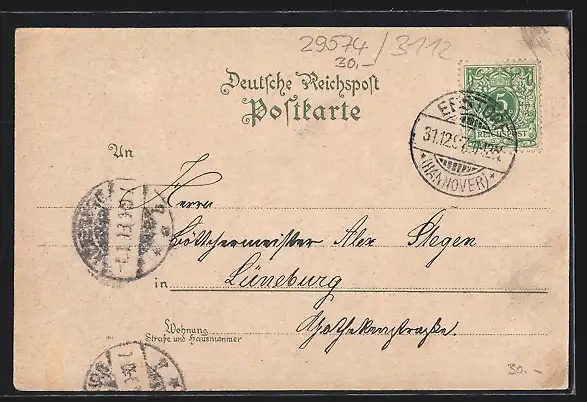 29574/3112
30,-
Deutsche Reichspost
Postkarte
5
REICHSPOST
31.12.97
(HANNOVER)
An
Herrn
Böttchermeister Alex Stegen
in Lüneburg
Wohnung
Straße und Hausnummer
Apothekenstraße.
30.-